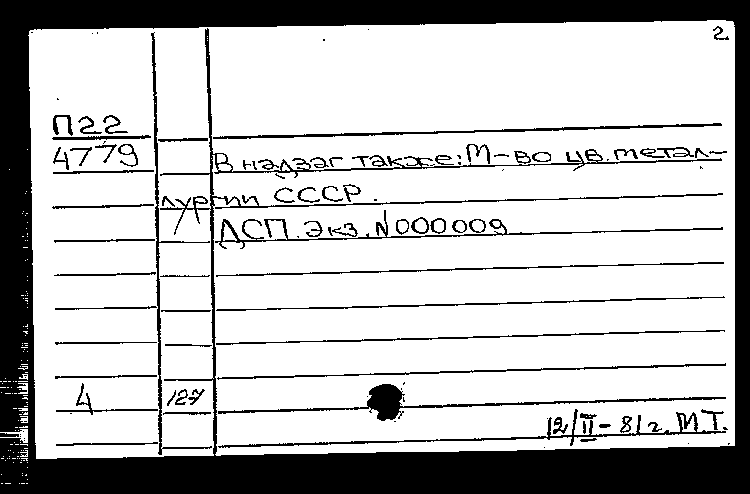 2.
П22
4779 В надзаг также: М-во цв. метал-
лургии СССР.
ДСП. Экз. N000009
4 127 12/II-81г. М.Т.